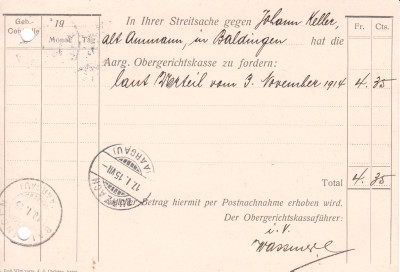 Geb.- 19 In Ihrer Streitsache gegen Johann Keller, Fr. Cts.
Monat Tag alt Ammann, in Baldingen hat die
Aarg. Obergerichtskasse zu fordern:
laut Urteil vom 3. November 1914 4. 35
AARAU
(AARGAU)
17.I.15.VII-
Total 4. 35
Betrag hiermit per Postnachnahme erhoben wird.
Der Obergerichtskassaführer:
i. V.